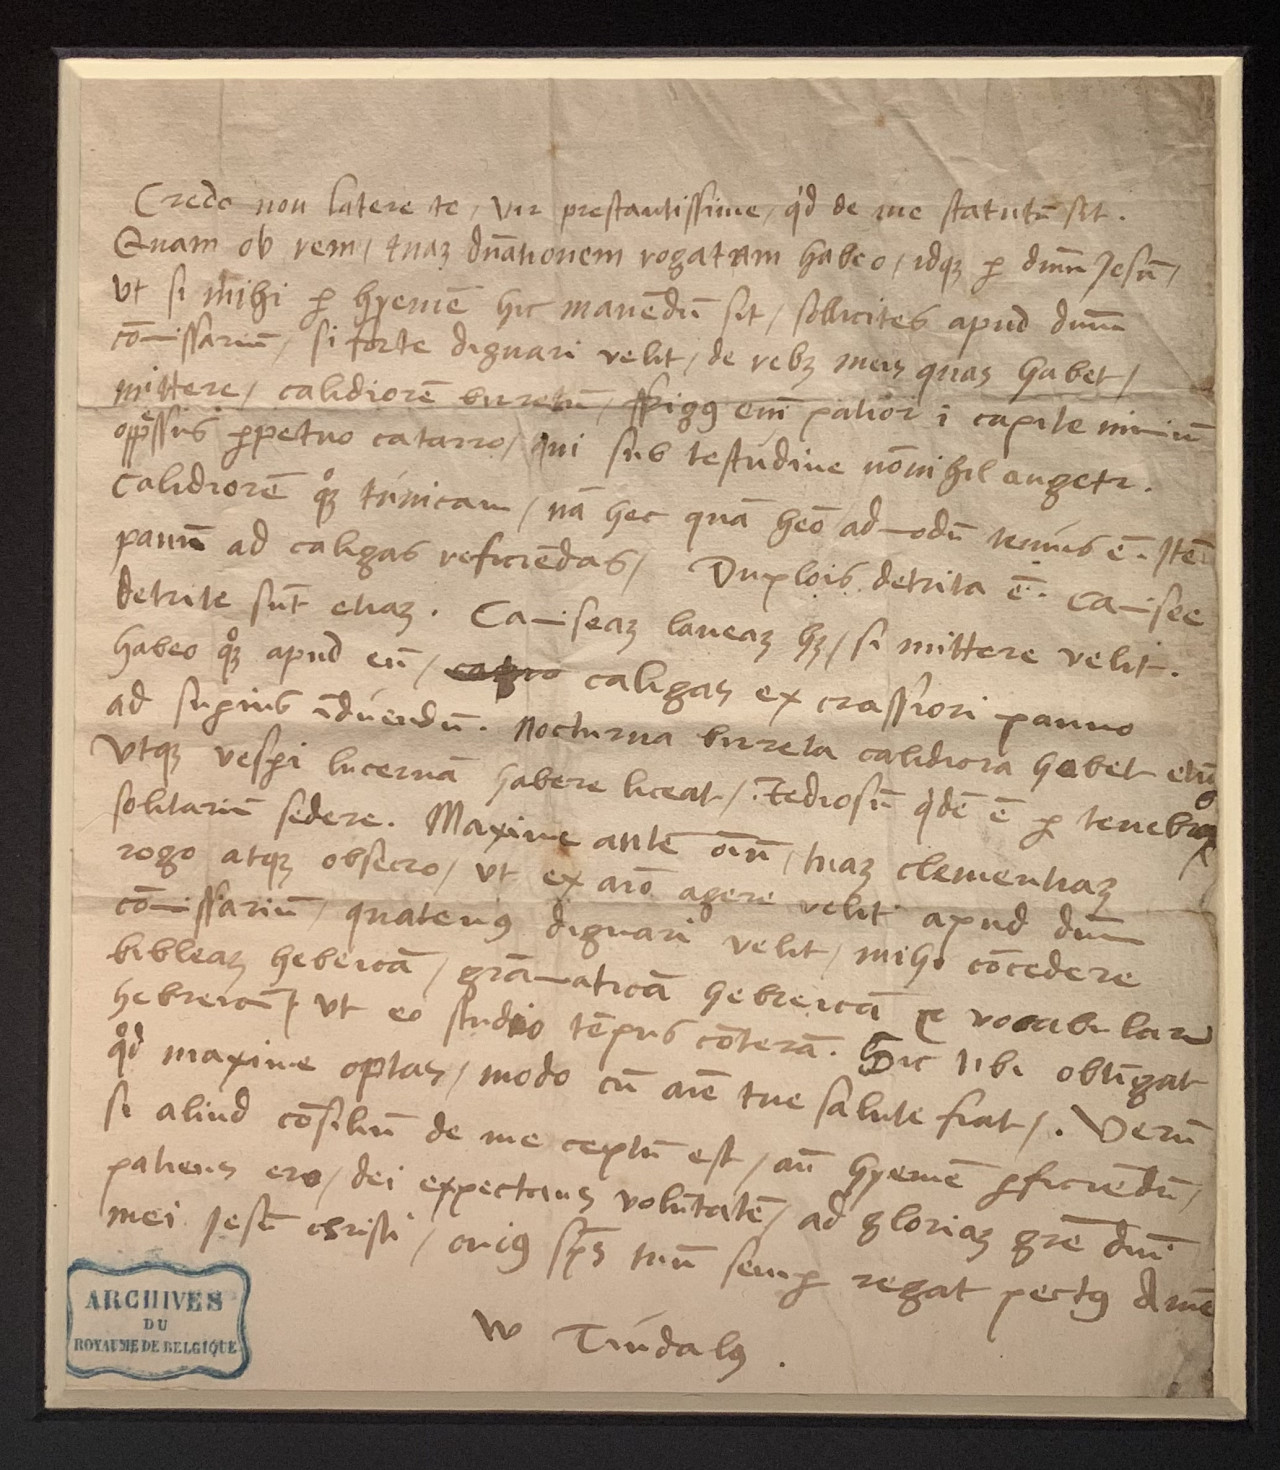 Credo non latere te, vir prestantissime, qd de me statutū sit.
Quam ob rem, tuaʒ dnāationem rogatam habeo, idqʒ p dnm̄ Jesū,
ut si mihi p hyemē hic manēdū sit, sollicites apud dnm̄
cōmissariū, si forte dignari velit, de rebʒ meis quas habet,
mittere, calidiorē birretū, ffrigꝰ enī patior ī capite nimiū
oppressus ꝑpetuo catarro, qui sub testudine nōnihil augetr.
Calidiorē qʒ tunicam, nā hec quā heō admodū tenuis ē. Itē
pannū ad caligas reficiēdas, Duplois detrita ē. Camisee
detrite sūt etiaʒ. Camiseaʒ laneaʒ hʒ, si mittere velit.
habeo qʒ apud eū, caligas ex crassiori panno
ad supius īduendū. Nocturna birreta calidiora habet etiā
Utqʒ vespi lucernā habere liceat, Tediosū qdē ē p tenebras
solitariū sedere. Maxime ante oīū, tuaʒ clementiaʒ
rogo atqʒ obsecro, ut ex aīo agere velit apud dnm̄
cōmissariū, quatenꝰ dignari velit, mihi cōcedere
bibleaʒ hebeicā, grāmaticā hebreicā & vocabulariū
hebreicū, ut eo studio tēpus cōterā. Sic tibi obtīgat
qd maxime optas, modo cū aīe tue salute fiat,. Verū
si aliud cōsiliū de me ceptū est, aū hyemē pficiēdū,
patiens ero, dei expectans volūtatē, ad gloriaʒ grē dnī
mei Jesu christi, cuiꝰ sps tuū semp regat pectꝰ Amē
W Tindalꝰ .
ARCHIVES
DU
ROYAUME DE BELGIQUE